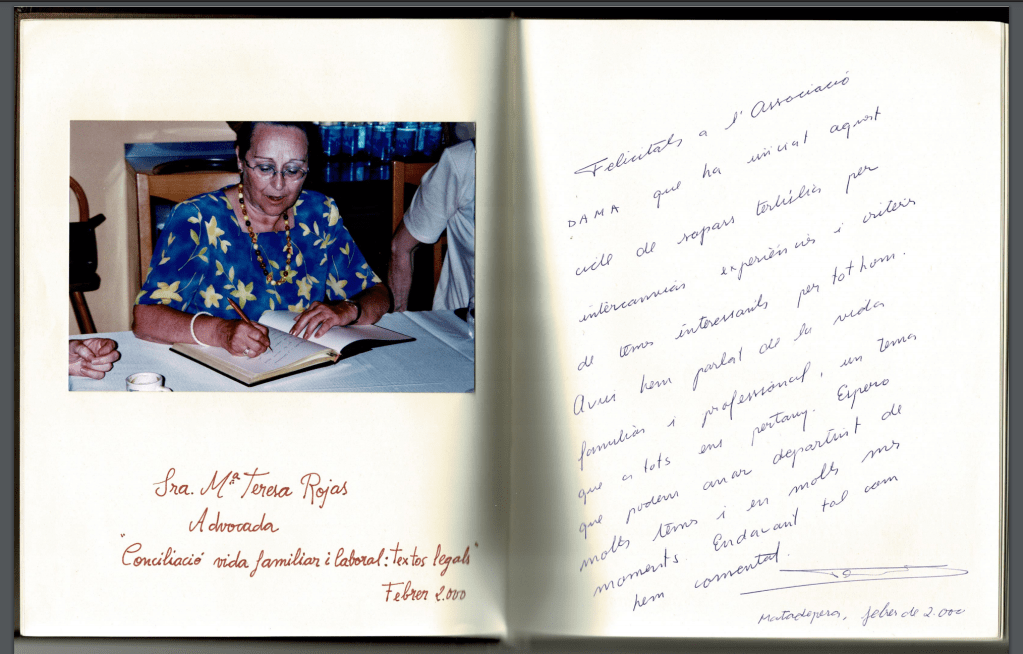 Sra. Mª Teresa Rojas
Advocada
"Conciliació vida familiar i laboral: textos legals"
Febrer 2.000
Felicitats a l'Associació
DAMA que ha iniciat aquest
cicle de sopars tertúlia per
intercanviar experiències i criteris
de temes interessants per tothom.
Avui hem parlat de la vida
familiar i professional, un tema
que a tots ens pertany. Espero
que podem anar departint de
molts temes i en molts
moments. Endavant tal com
hem comentat.
Matadepera, febrer de 2.000